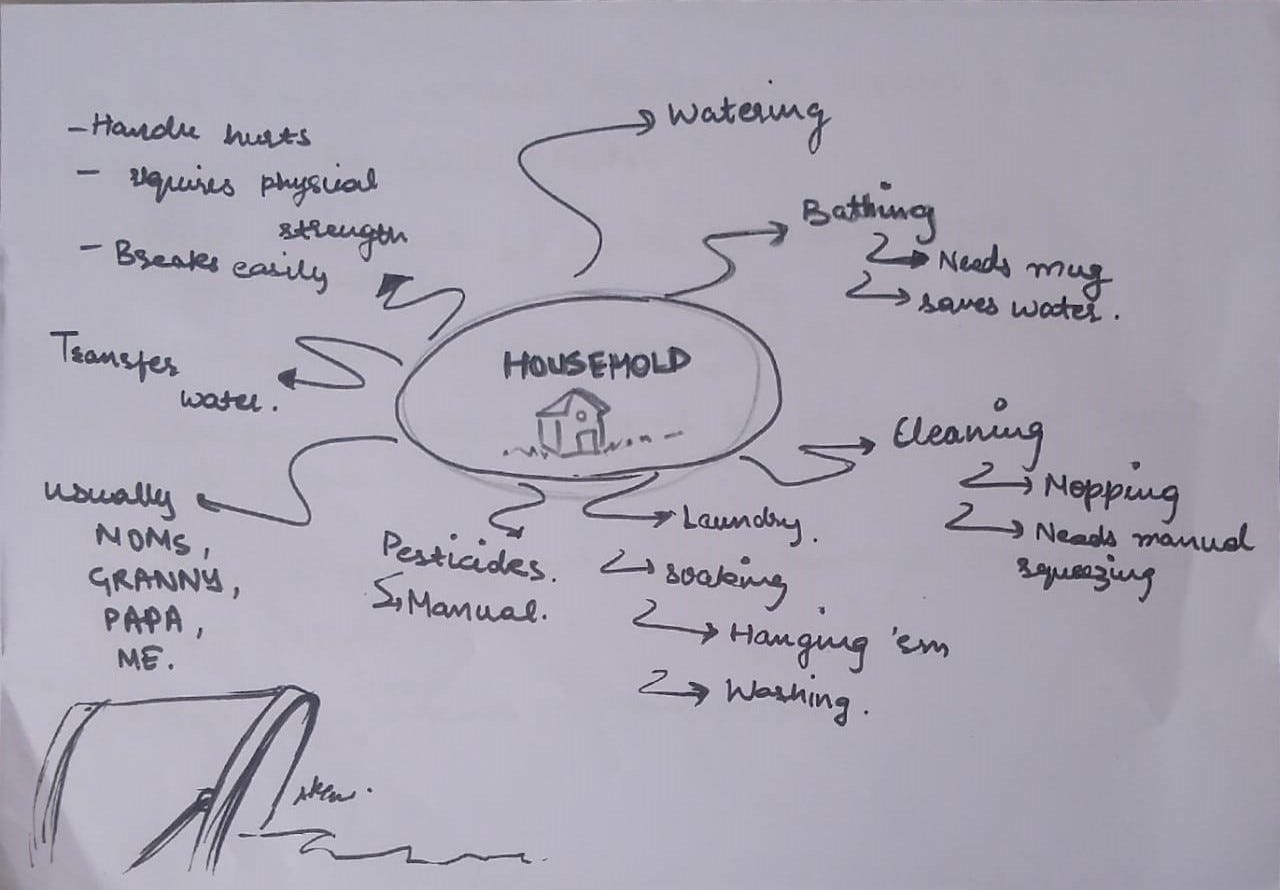 -Handle hurts
- requires physical
strength
- Breaks easily
Transfer
water.
usually
MOMS,
GRANNY,
PAPA,
ME.
HOUSEHOLD
Watering
Bathing
Needs mug
saves water.
Cleaning
Mopping
Needs manual
squeezing
Laundry.
soaking
Hanging 'em
Washing.
Pesticides.
Manual.